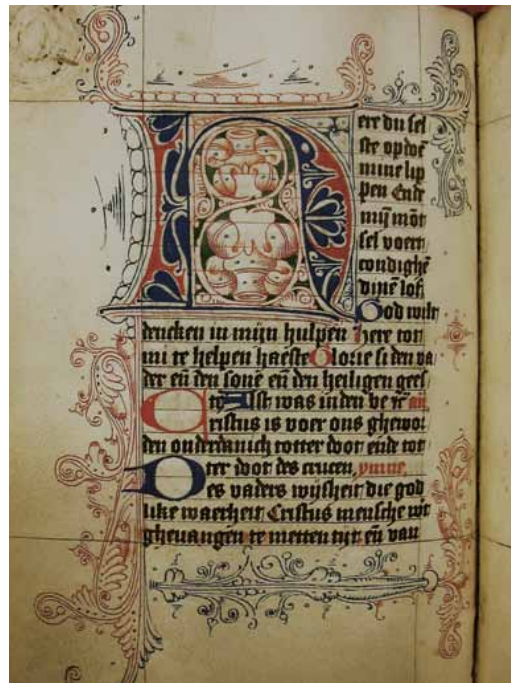 Here du sel
ste opdoē
mine lip
pen Ende
mȳ mōt
sel voert
condighē
dinē lof
God wilt
dencken in mijn hulpen Here tot
mi te helpen haeste Glorie si den va
der eñ den sonē eñ den heiligen gees
to Alst was in den be
Cristus is voer ons ghewor
den onderdanich totter doot ende tot
ter doot des crucen, ymne,
Des vaders wijsheit die god
like waerheit Cristus mensche wt
gheuangē te metten tijt eñ van